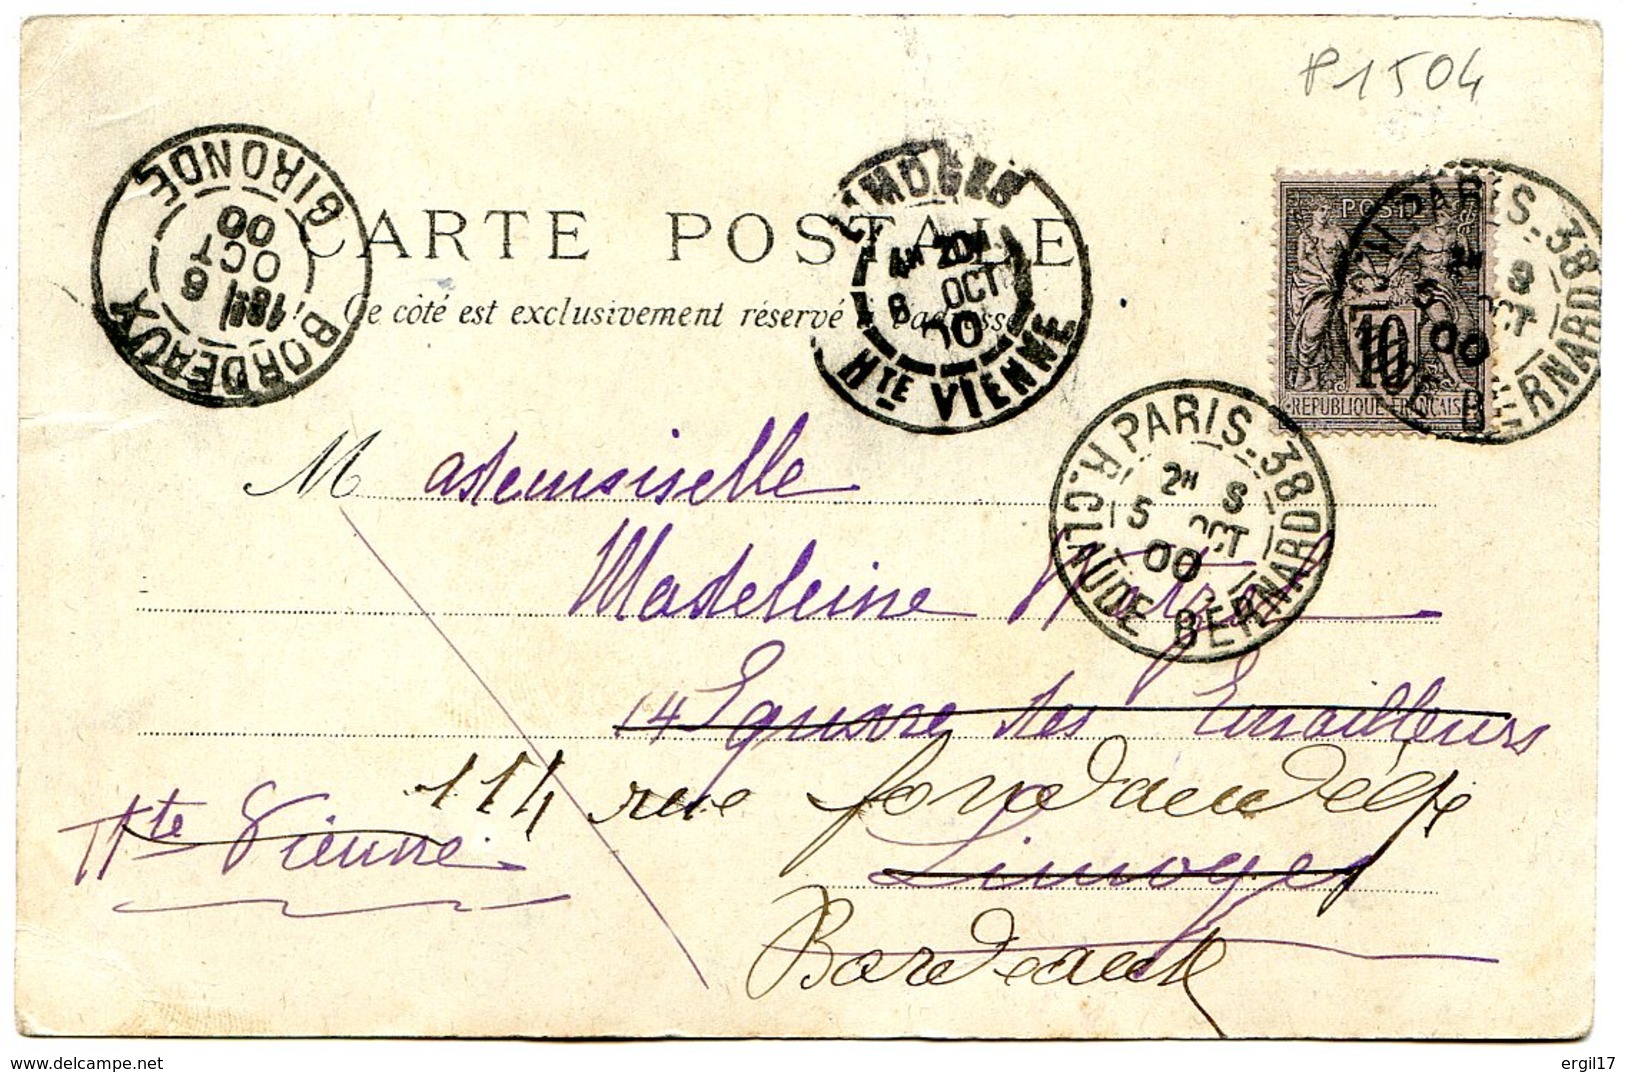 P1504
CARTE POSTALE
Ce côté est exclusivement réservé à l'adresse
BORDEAUX GIRONDE
18H 6
OCT
00
LIMOGES
8 OCT
00
HTE VIENNE
POSTES
10
REPUBLIQUE FRANÇAISE
PARIS-38
R. CLAUDE BERNARD
2H S
5 OCT
00
PARIS-38
R. CLAUDE BERNARD
2H S
5 OCT
00
Mademoiselle
Madeleine
14 Square des Emailleurs
114 rue fondaudège
Hte Vienne
Limoges
Bordeaux
ergil17